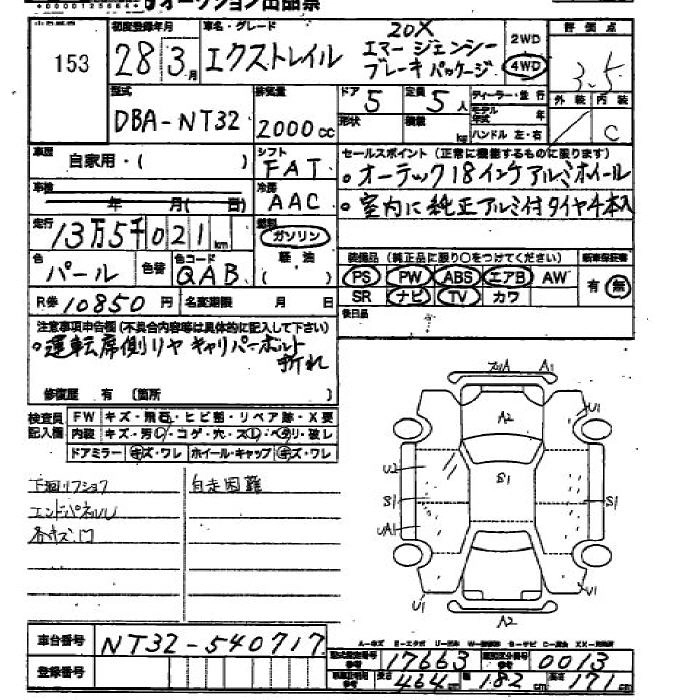 オークション出品票
153
初度登録年月 28年3月
車名・グレード エクストレイル 20X エマージェンシーブレーキパッケージ
2WD 4WD
評価点 3.5
外装 内装 C
型式 DBA-NT32
排気量 2000cc
ドア 5 定員 5人
形状 積載 kg
ディーラー・並行
モデル年式 年
ハンドル 左・右
車歴 自家用・( )
シフト FAT
冷房 AAC
車検 年 月( 日)
走行 13万5千021km
燃料 ガソリン 軽油 ( )
色 パール 色替 色コード QAB
R券 10850円 名変期限 月 日
セールスポイント (正常に機能するものに限ります)
・オーテック18インチアルミホイール
・室内に純正アルミ付タイヤ4本入
装備品 (純正品に限り○をつけてください)
PS PW ABS エアB AW
SR ナビ TV カワ
新車保証書 有・無
後日品
注意事項申告欄 (不具合内容等は具体的に記入して下さい)
・運転席側リヤキャリパーボルト折れ
修復歴 有 〔箇所 〕
検査員記入欄
FW キズ・飛石・ヒビ割・リペア跡・X要
内装 キズ・汚・コゲ・穴・スレ・ヘタリ・破レ
ドアミラー キズ・ワレ ホイール・キャップ キズ・ワレ
下廻リフショク 自走困難
エンドパネルU
各キズ、凹
A1
A2
U1
S1
U2
S1
S1
UA1
U1
U1
A2
車台番号 NT32-540717
登録番号
型式指定番号 17663 類別区分番号 0013
長さ 464cm 幅 182cm 高さ 171cm